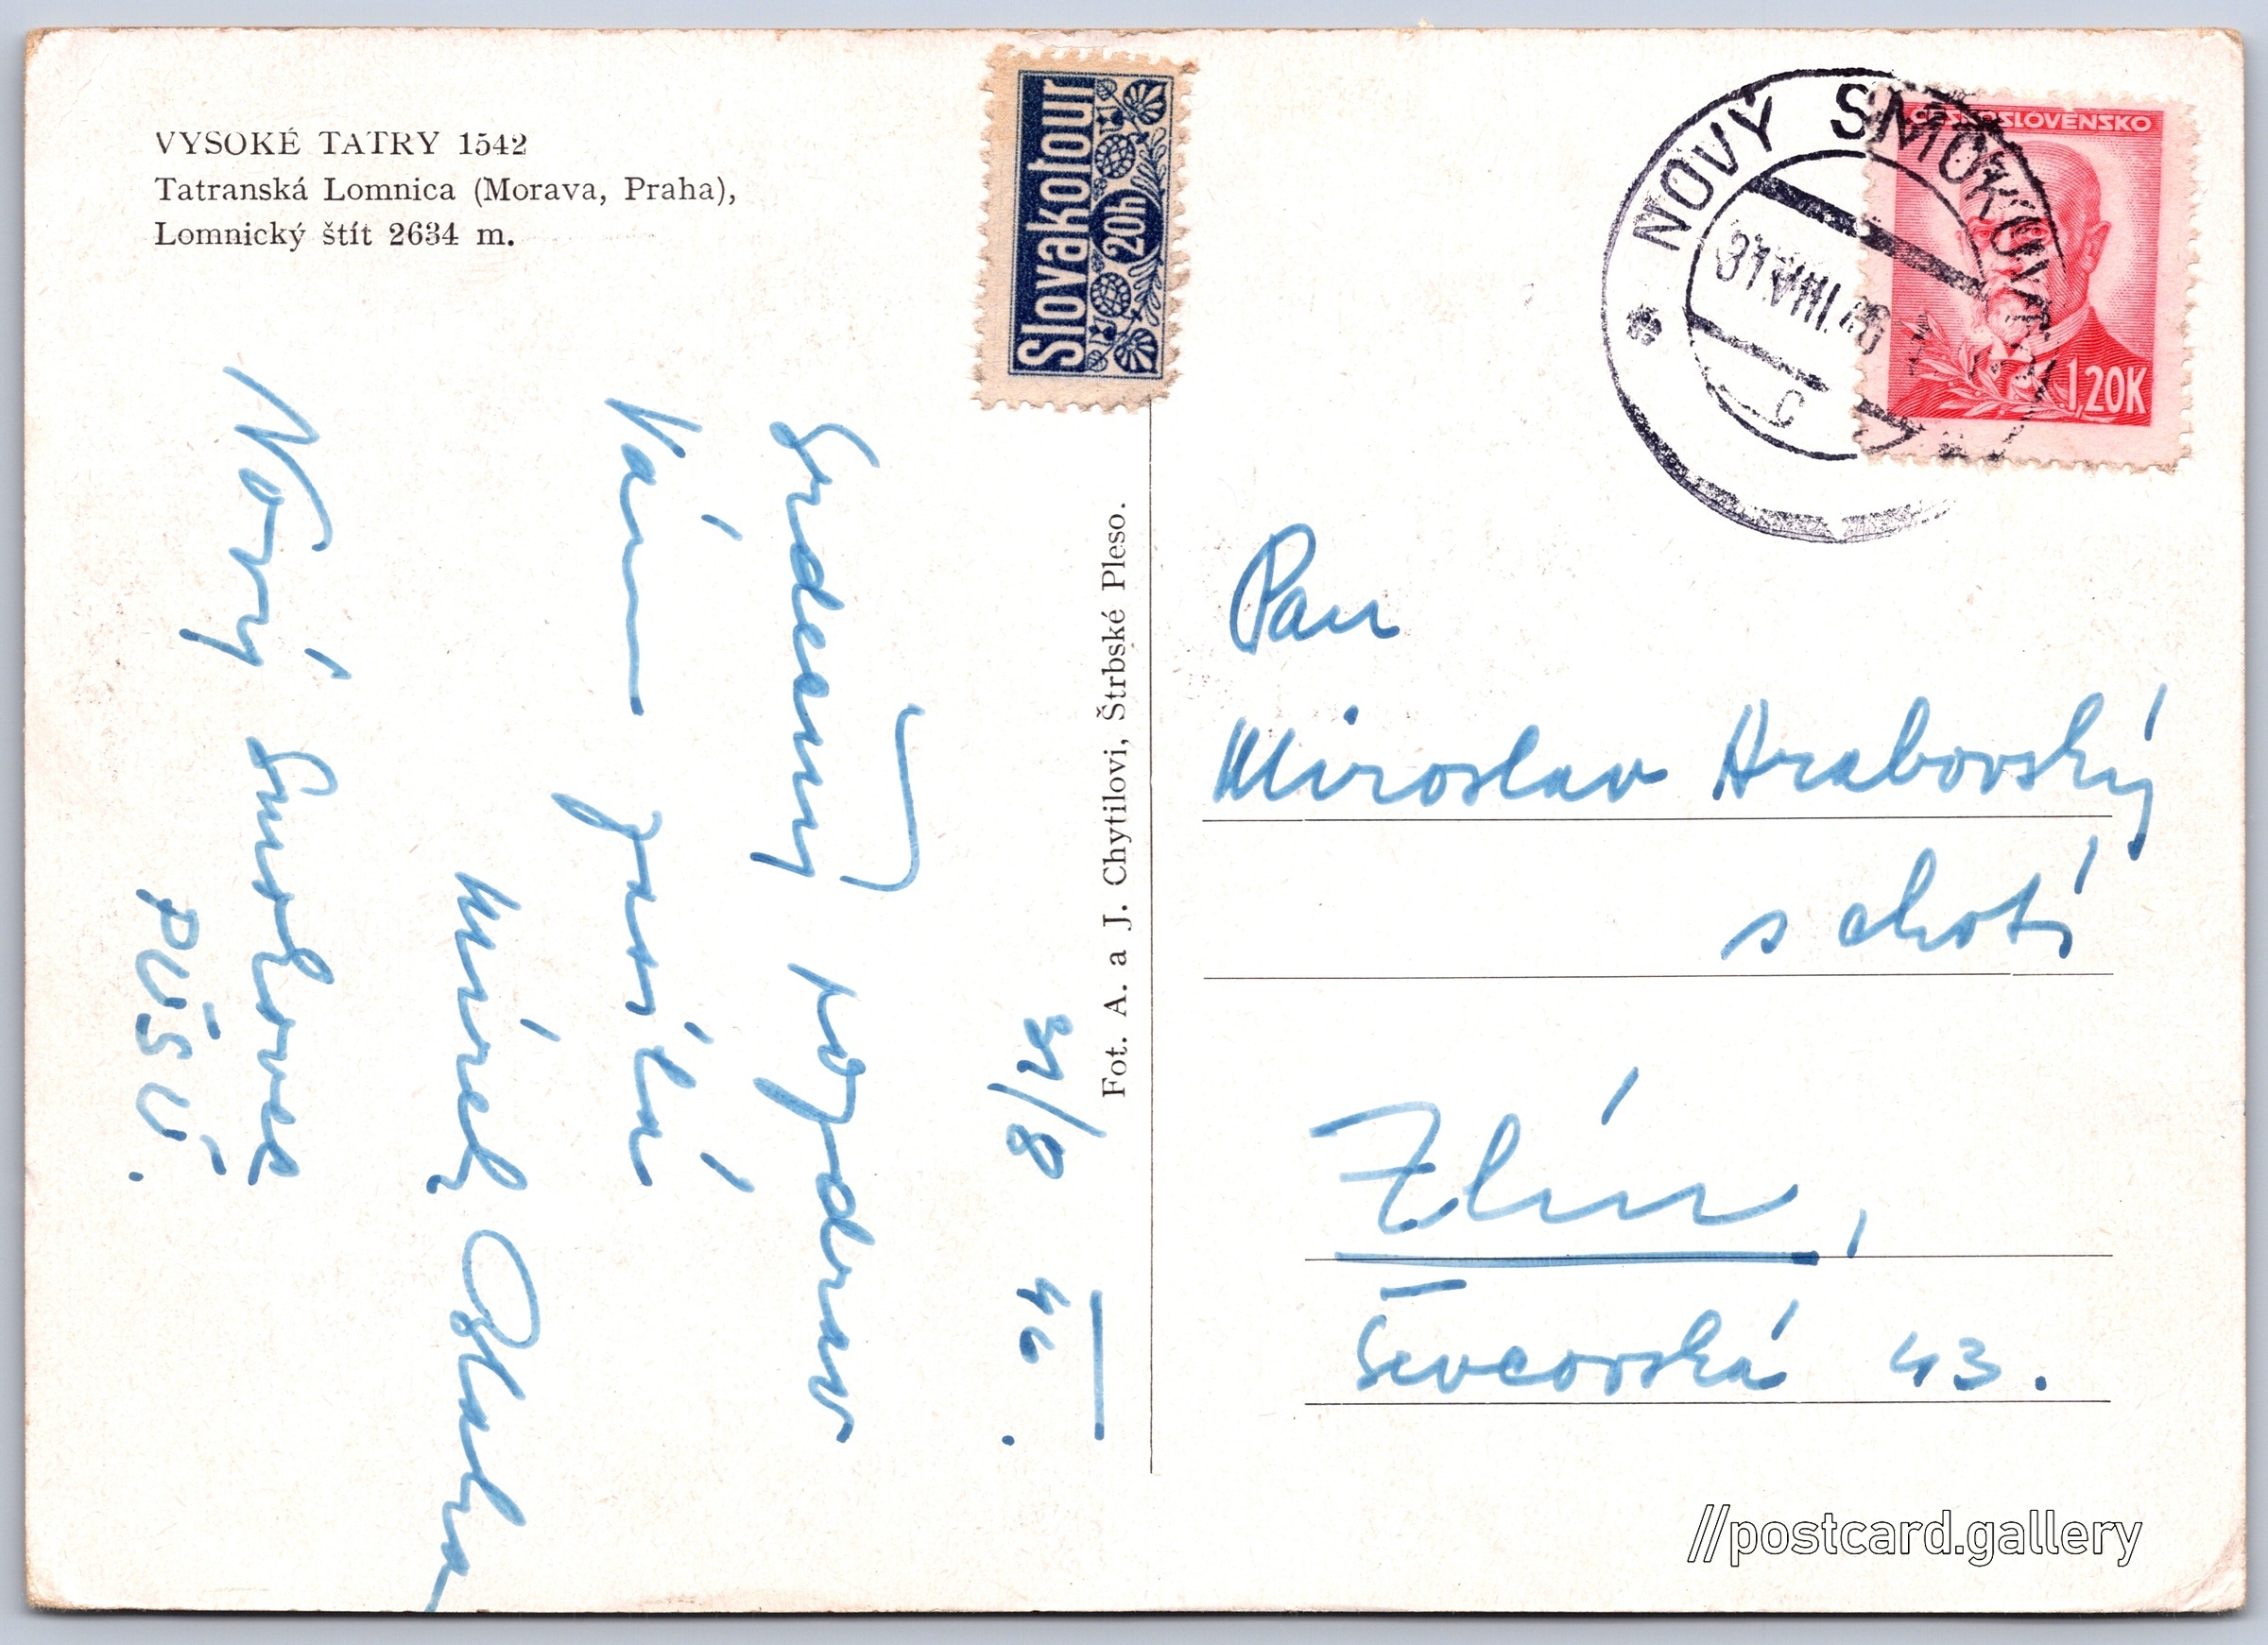 VYSOKÉ TATRY 1542
Tatranská Lomnica (Morava, Praha),
Lomnický štít 2634 m.
Slovakotour
20h
ČESKOSLOVENSKO
1,20K
NOVÝ SMOKOVEC
31.VIII.46
C
Fot. A. a J. Chytilovi, Štrbské Pleso.
31/8 46.
Srdečný pozdrav
Vám posílá
Mirek
Nový Smokovec
Pan
Miroslav Hrabovský
s chotí
Zlín,
Ševcovská 43.
//postcard.gallery